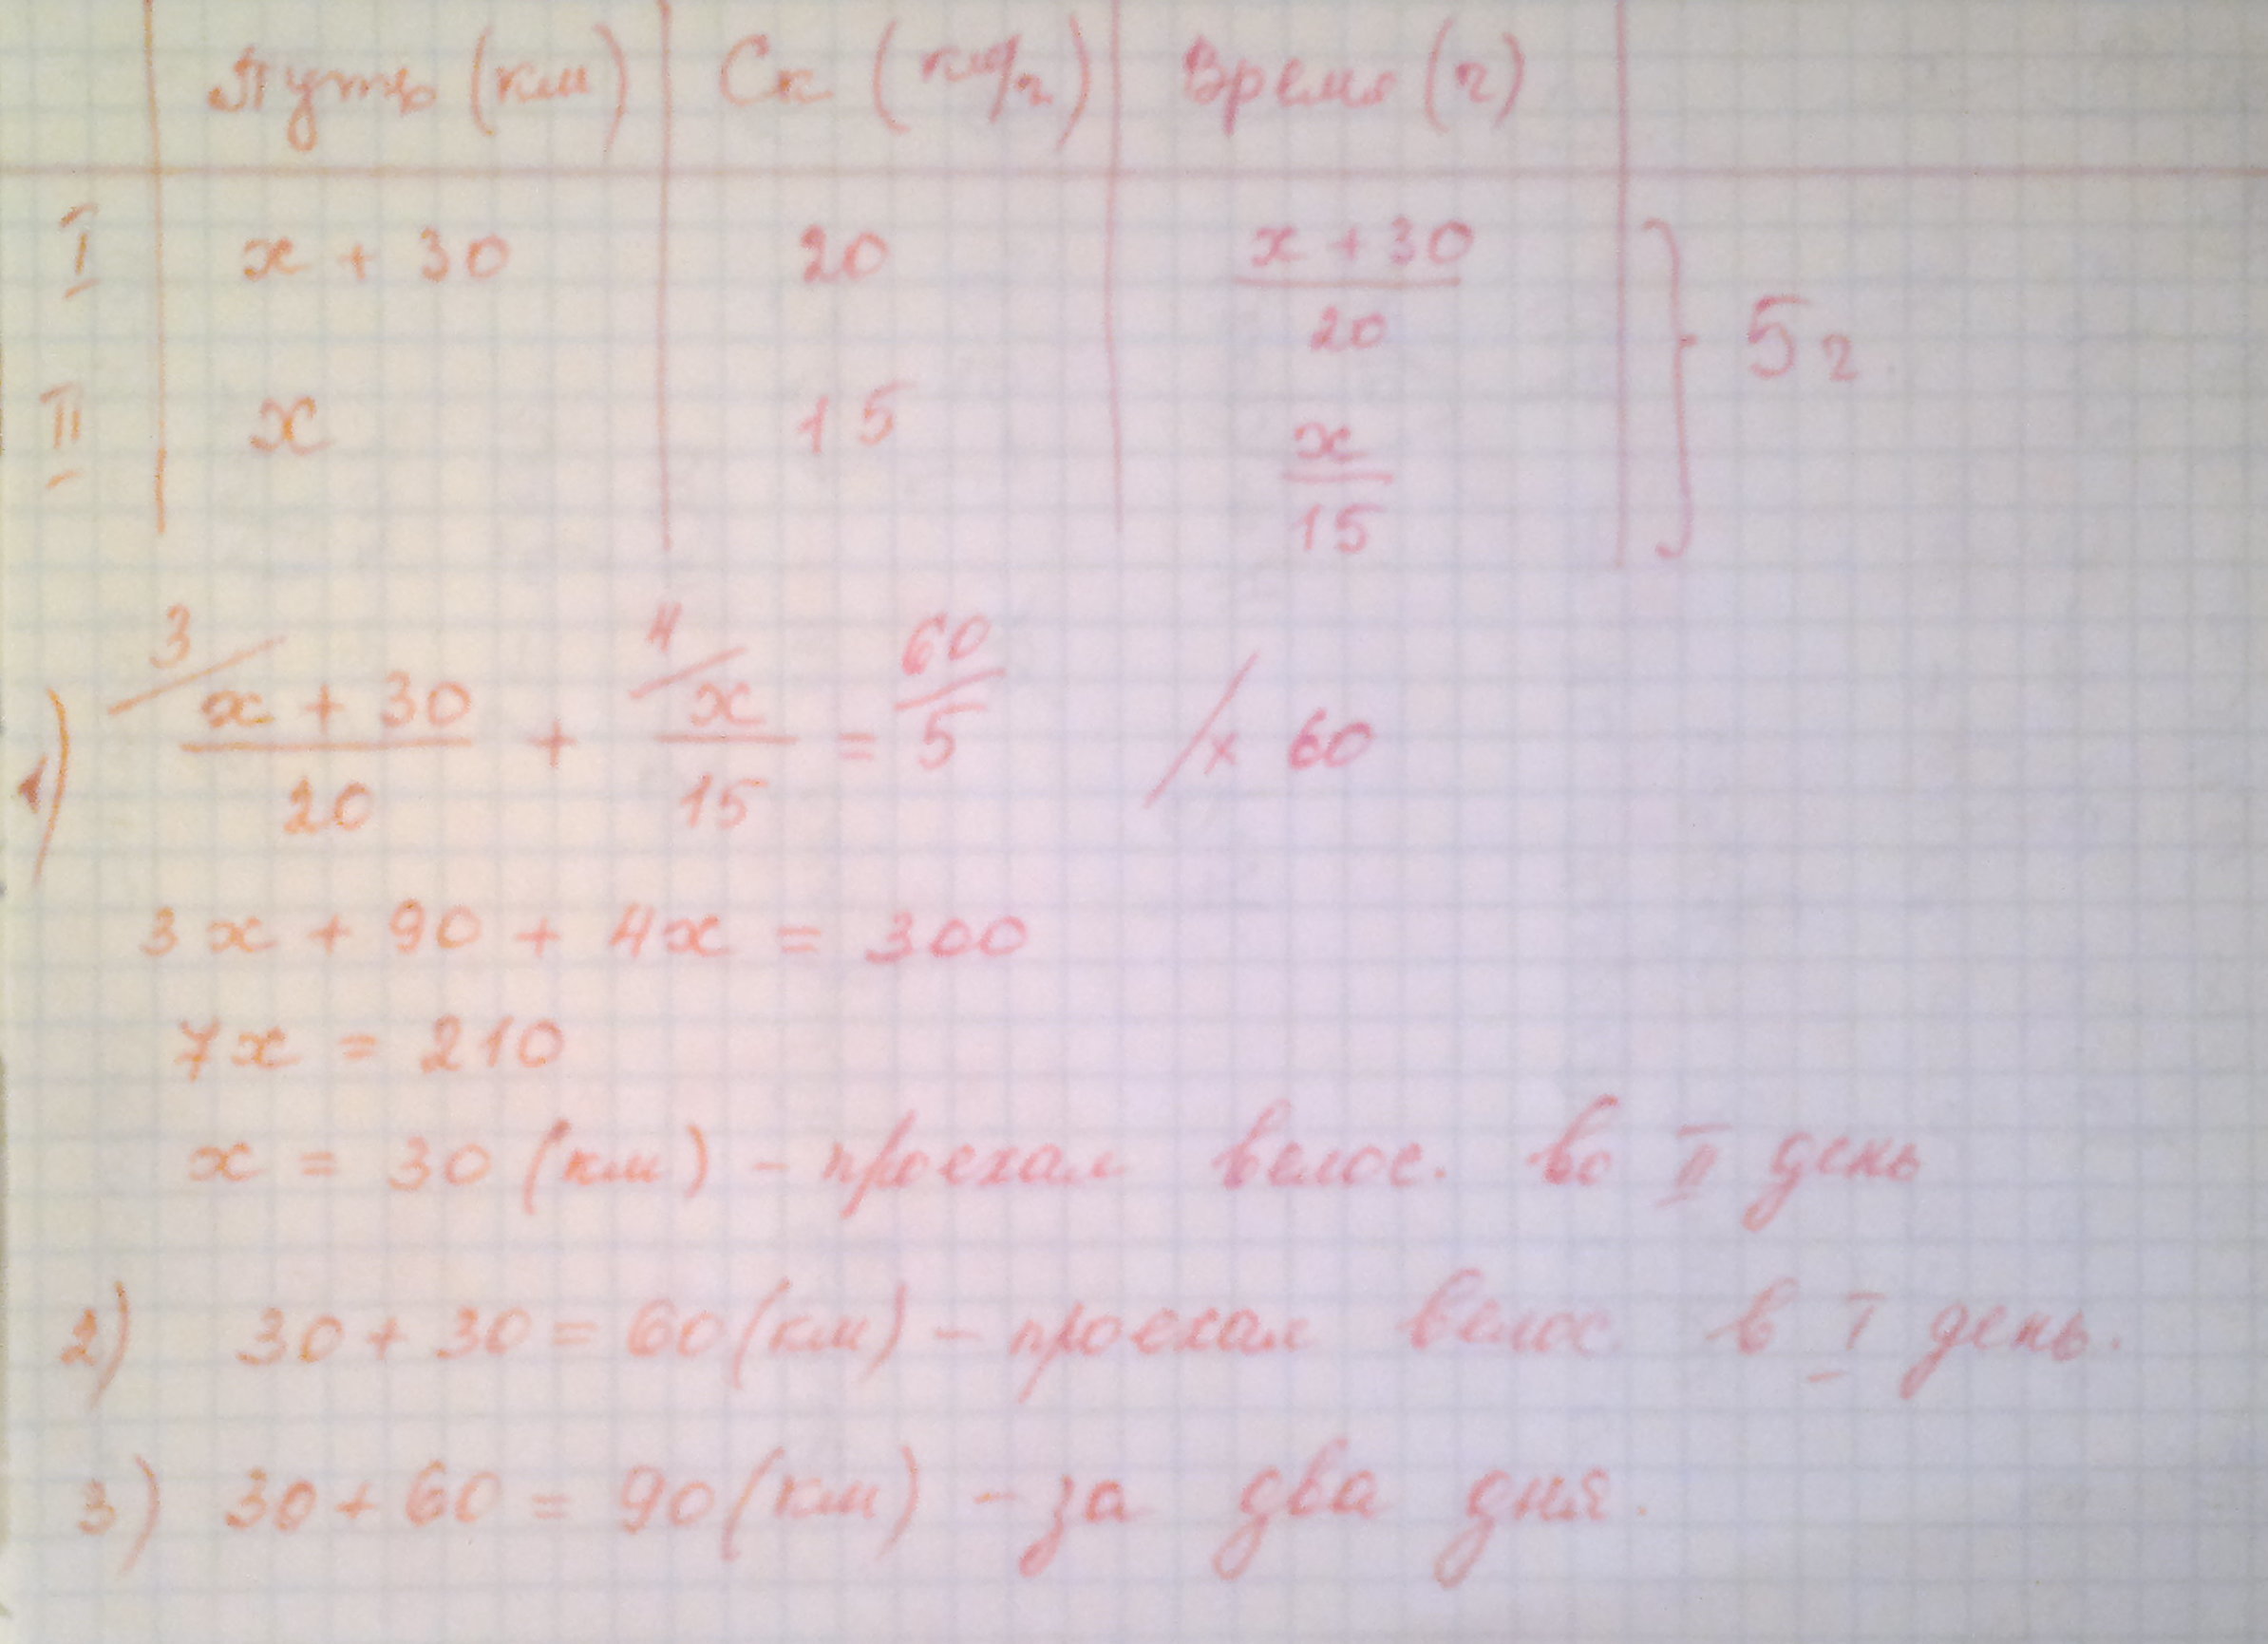 Путь (км) Ск (км/ч) Время (ч)
I x + 30 20 x + 30 / 20
5 ч.
II x 15 x / 15
1) 3/ x + 30 / 20 + 4/ x / 15 = 60/ 5 / × 60
3x + 90 + 4x = 300
7x = 210
x = 30 (км) - проехал велос. во II день
2) 30 + 30 = 60 (км) - проехал велос. в I день.
3) 30 + 60 = 90 (км) - за два дня.